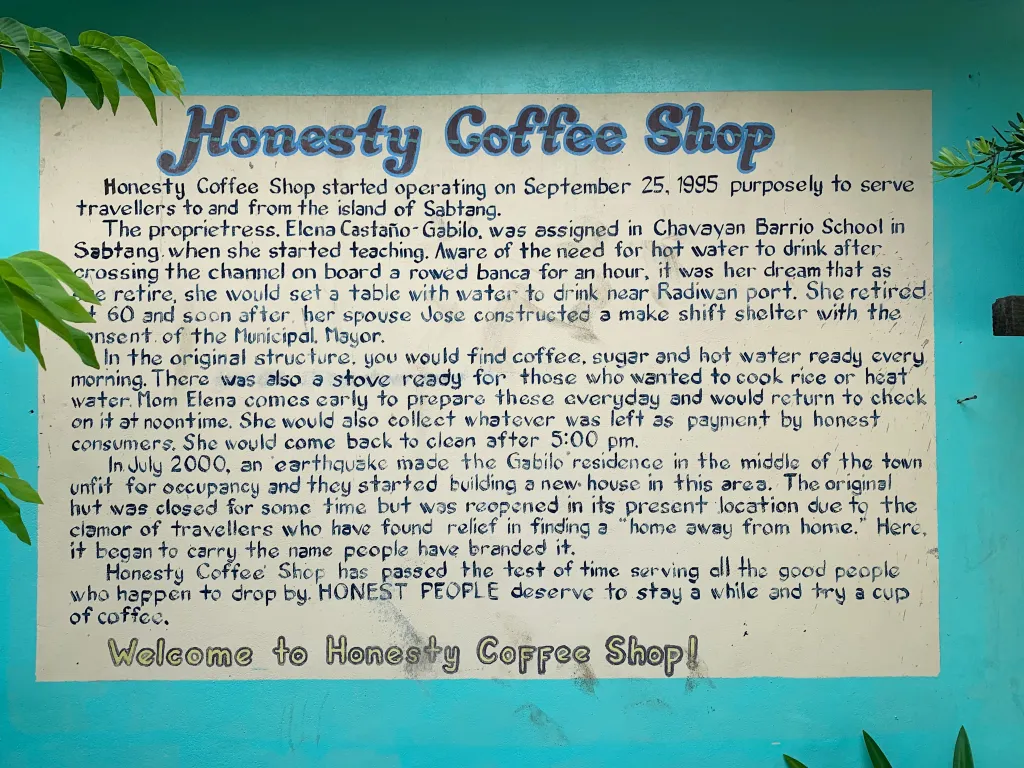 Honesty Coffee Shop
Honesty Coffee Shop started operating on September 25, 1995 purposely to serve
travellers to and from the island of Sabtang.
The proprietress, Elena Castaño-Gabilo, was assigned in Chavayan Barrio School in
Sabtang when she started teaching. Aware of the need for hot water to drink after
crossing the channel on board a rowed banca for an hour, it was her dream that as
she retire, she would set a table with water to drink near Radiwan port. She retired
at 60 and soon after, her spouse Jose constructed a make shift shelter with the
consent of the Municipal Mayor.
In the original structure, you would find coffee, sugar and hot water ready every
morning. There was also a stove ready for those who wanted to cook rice or heat
water. Mom Elena comes early to prepare these everyday and would return to check
on it at noontime. She would also collect whatever was left as payment by honest
consumers. She would come back to clean after 5:00 pm.
In July 2000, an earthquake made the Gabilo residence in the middle of the town
unfit for occupancy and they started building a new house in this area. The original
hut was closed for some time but was reopened in its present location due to the
clamor of travellers who have found relief in finding a "home away from home." Here,
it began to carry the name people have branded it.
Honesty Coffee Shop has passed the test of time serving all the good people
who happen to drop by. HONEST PEOPLE deserve to stay a while and try a cup
of coffee.
Welcome to Honesty Coffee Shop!